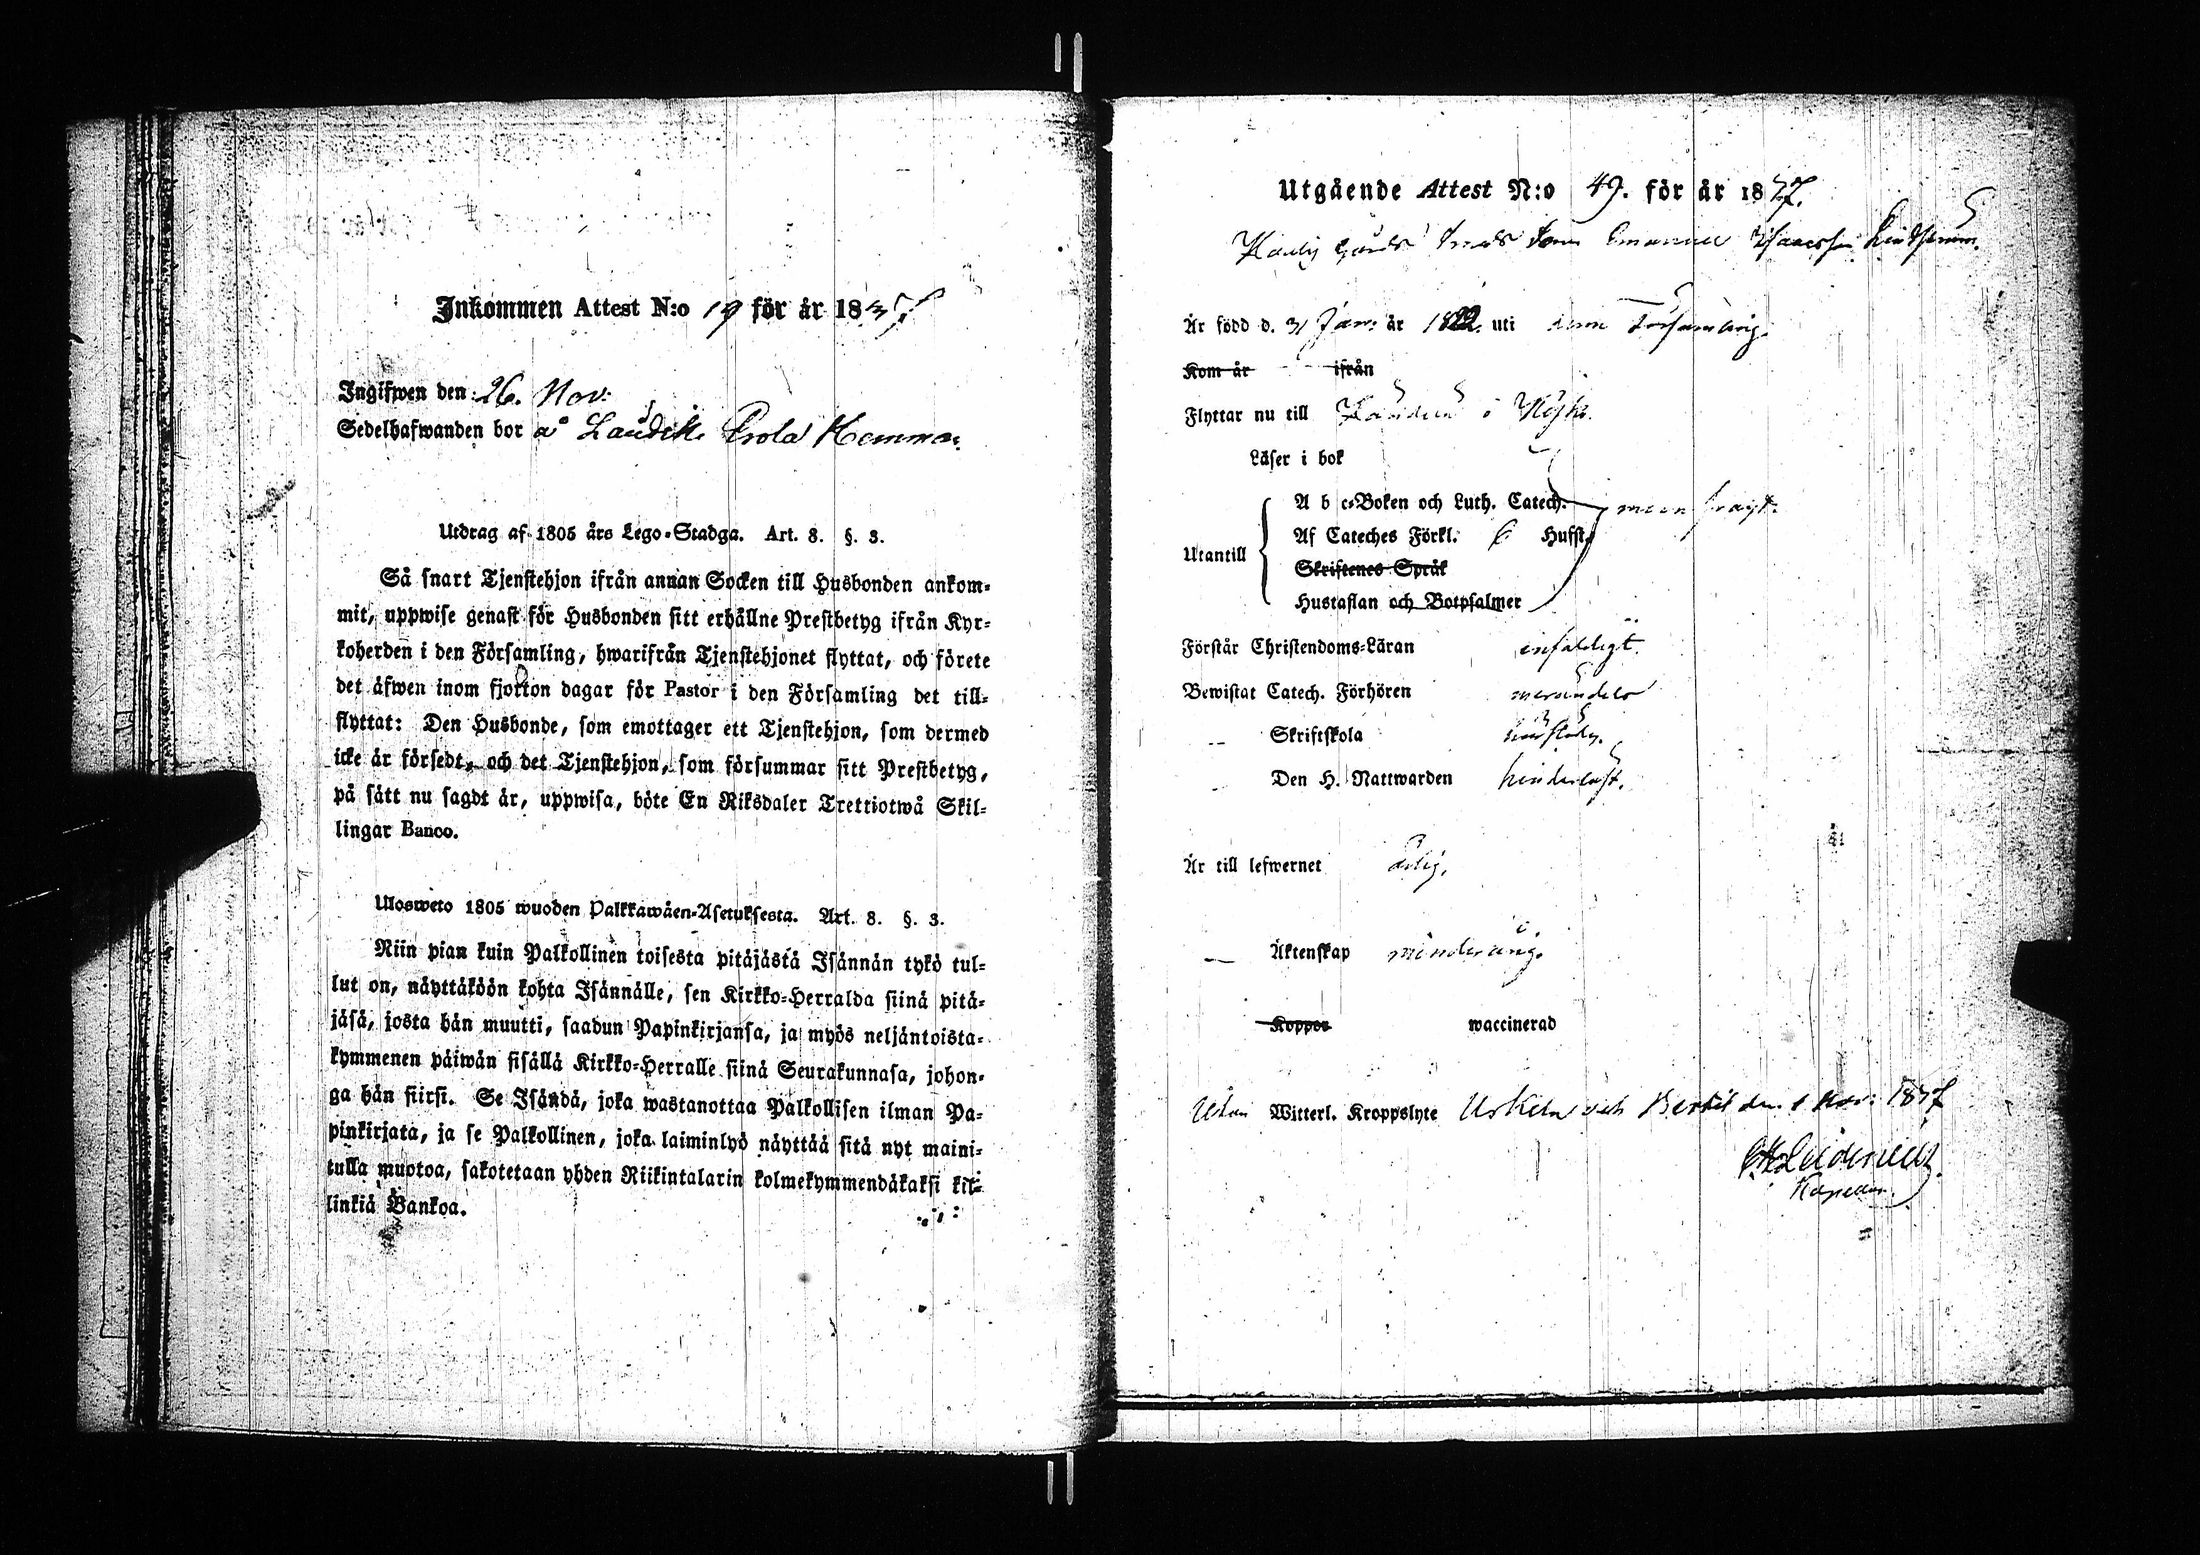 Inkommen Attest N:o 19 för år 1837
Ingifwen den 26. Nov.
Sedelhafwanden bor å Laudik Prola Hemman
Utdrag af 1805 års Lego-Stadga. Art. 8. §. 3.
Så snart Tjenstehjon ifrån annan Socken till Husbonden ankom-
mit, uppwise genast för Husbonden sitt erhållne Prestbetyg ifrån Kyr-
koherden i den Församling, hwarifrån Tjenstehjonet flyttat, och förete
det äfwen inom fjorton dagar för Pastor i den Församling det till-
flyttat: Den Husbonde, som emottager ett Tjenstehjon, som dermed
icke är försedt, och det Tjenstehjon, som försummar sitt Prestbetyg,
på sätt nu sagdt är, uppwisa, böte En Riksdaler Trettiotwå Skil-
lingar Banco.
Ulosweto 1805 wuoden Palkkawäen-Asetuksesta. Art. 8. §. 3.
Niin pian kuin Palkollinen toisesta pitäjästä Isännän tykö tul-
lut on, näyttäköön kohta Isännälle, sen Kirkko-Herralda siinä pitä-
jäsä, josta hän muutti, saadun Papinkirjansa, ja myös neljäntoista-
kymmenen päiwän sisällä Kirkko-Herralle siinä Seurakunnasa, johon-
ga hän siirsi. Se Isändä, joka wastanottaa Palkollisen ilman Pa-
pinkirjata, ja se Palkollinen, joka laiminlyö näyttää sitä nyt maini-
tulla muotoa, sakotetaan yhden Riikintalarin kolmekymmendäkaksi kil-
linkiä Bankoa.
Utgående Attest N:o 49. för år 1837.
Gårds Son Emanuel Isaacsson Lindström
Är född d. 31 Jan: år 1822. uti denna Församling.
Kom år ifrån
Flyttar nu till i
Läser i bok
Utantill
A b c-Boken och Luth. Catech.
Af Cateches Förkl. 6 Hufst.
Skriftenes Språk
Hustaflan och Botpsalmer
Förstår Christendoms-Läran enfaldigt.
Bewistat Catech. Förhören merändels
Skriftskola
Den H. Nattwarden
Är till lefwernet ärlig.
Äktenskap minderårig.
Koppor waccinerad
Utan Witterl. Kroppslyte Uskela och Bertil den 1 Nov: 1837
Kapellan.